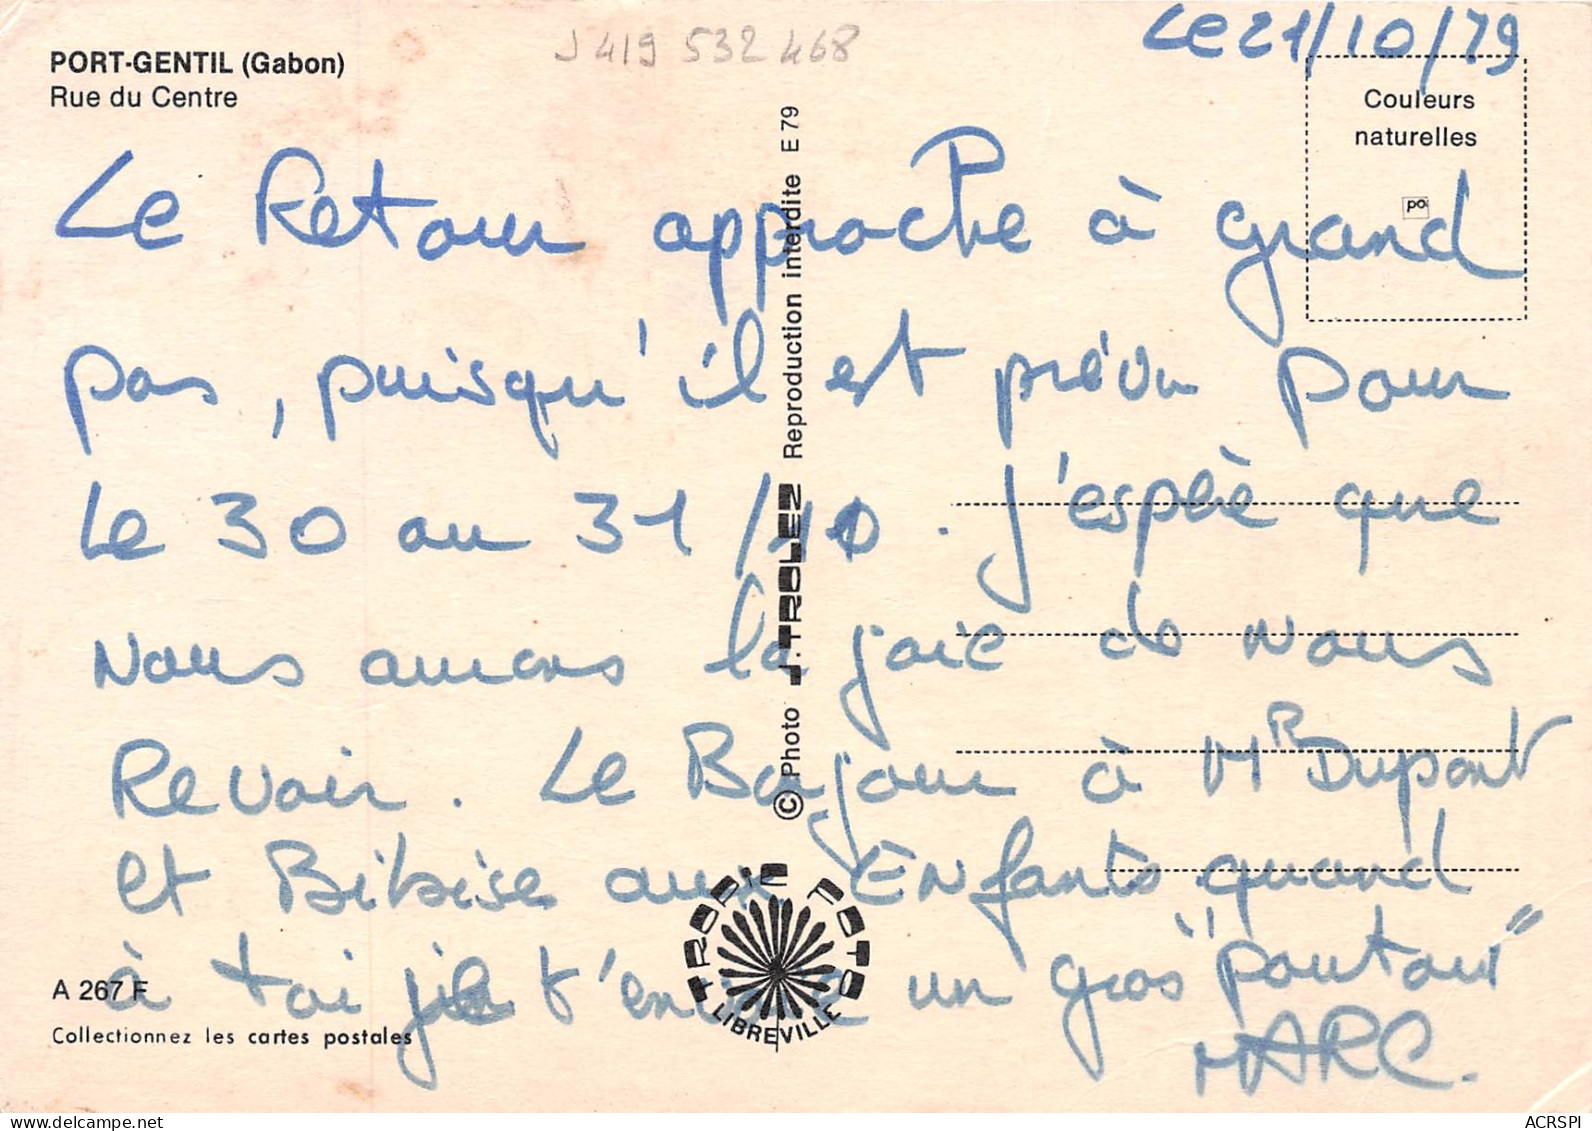 PORT-GENTIL (Gabon)
Rue du Centre
J 419 532 468
Le 21/10/79
Couleurs
naturelles
po
Le Retour approche à grand
pas, puisqu'il est prévu pour
Le 30 ou 31/10. J'espère que
Nous aurons la joie de Nous
Revoir. Le Bonjour à MR Dupont
et Bibise aux Enfants quand
à toi je t'envoie un gros "poutou"
MARC.
© Photo J. TROLEZ Reproduction interdite E 79
TROPIC FOTO
LIBREVILLE
A 267 F
Collectionnez les cartes postales
ACRSPI